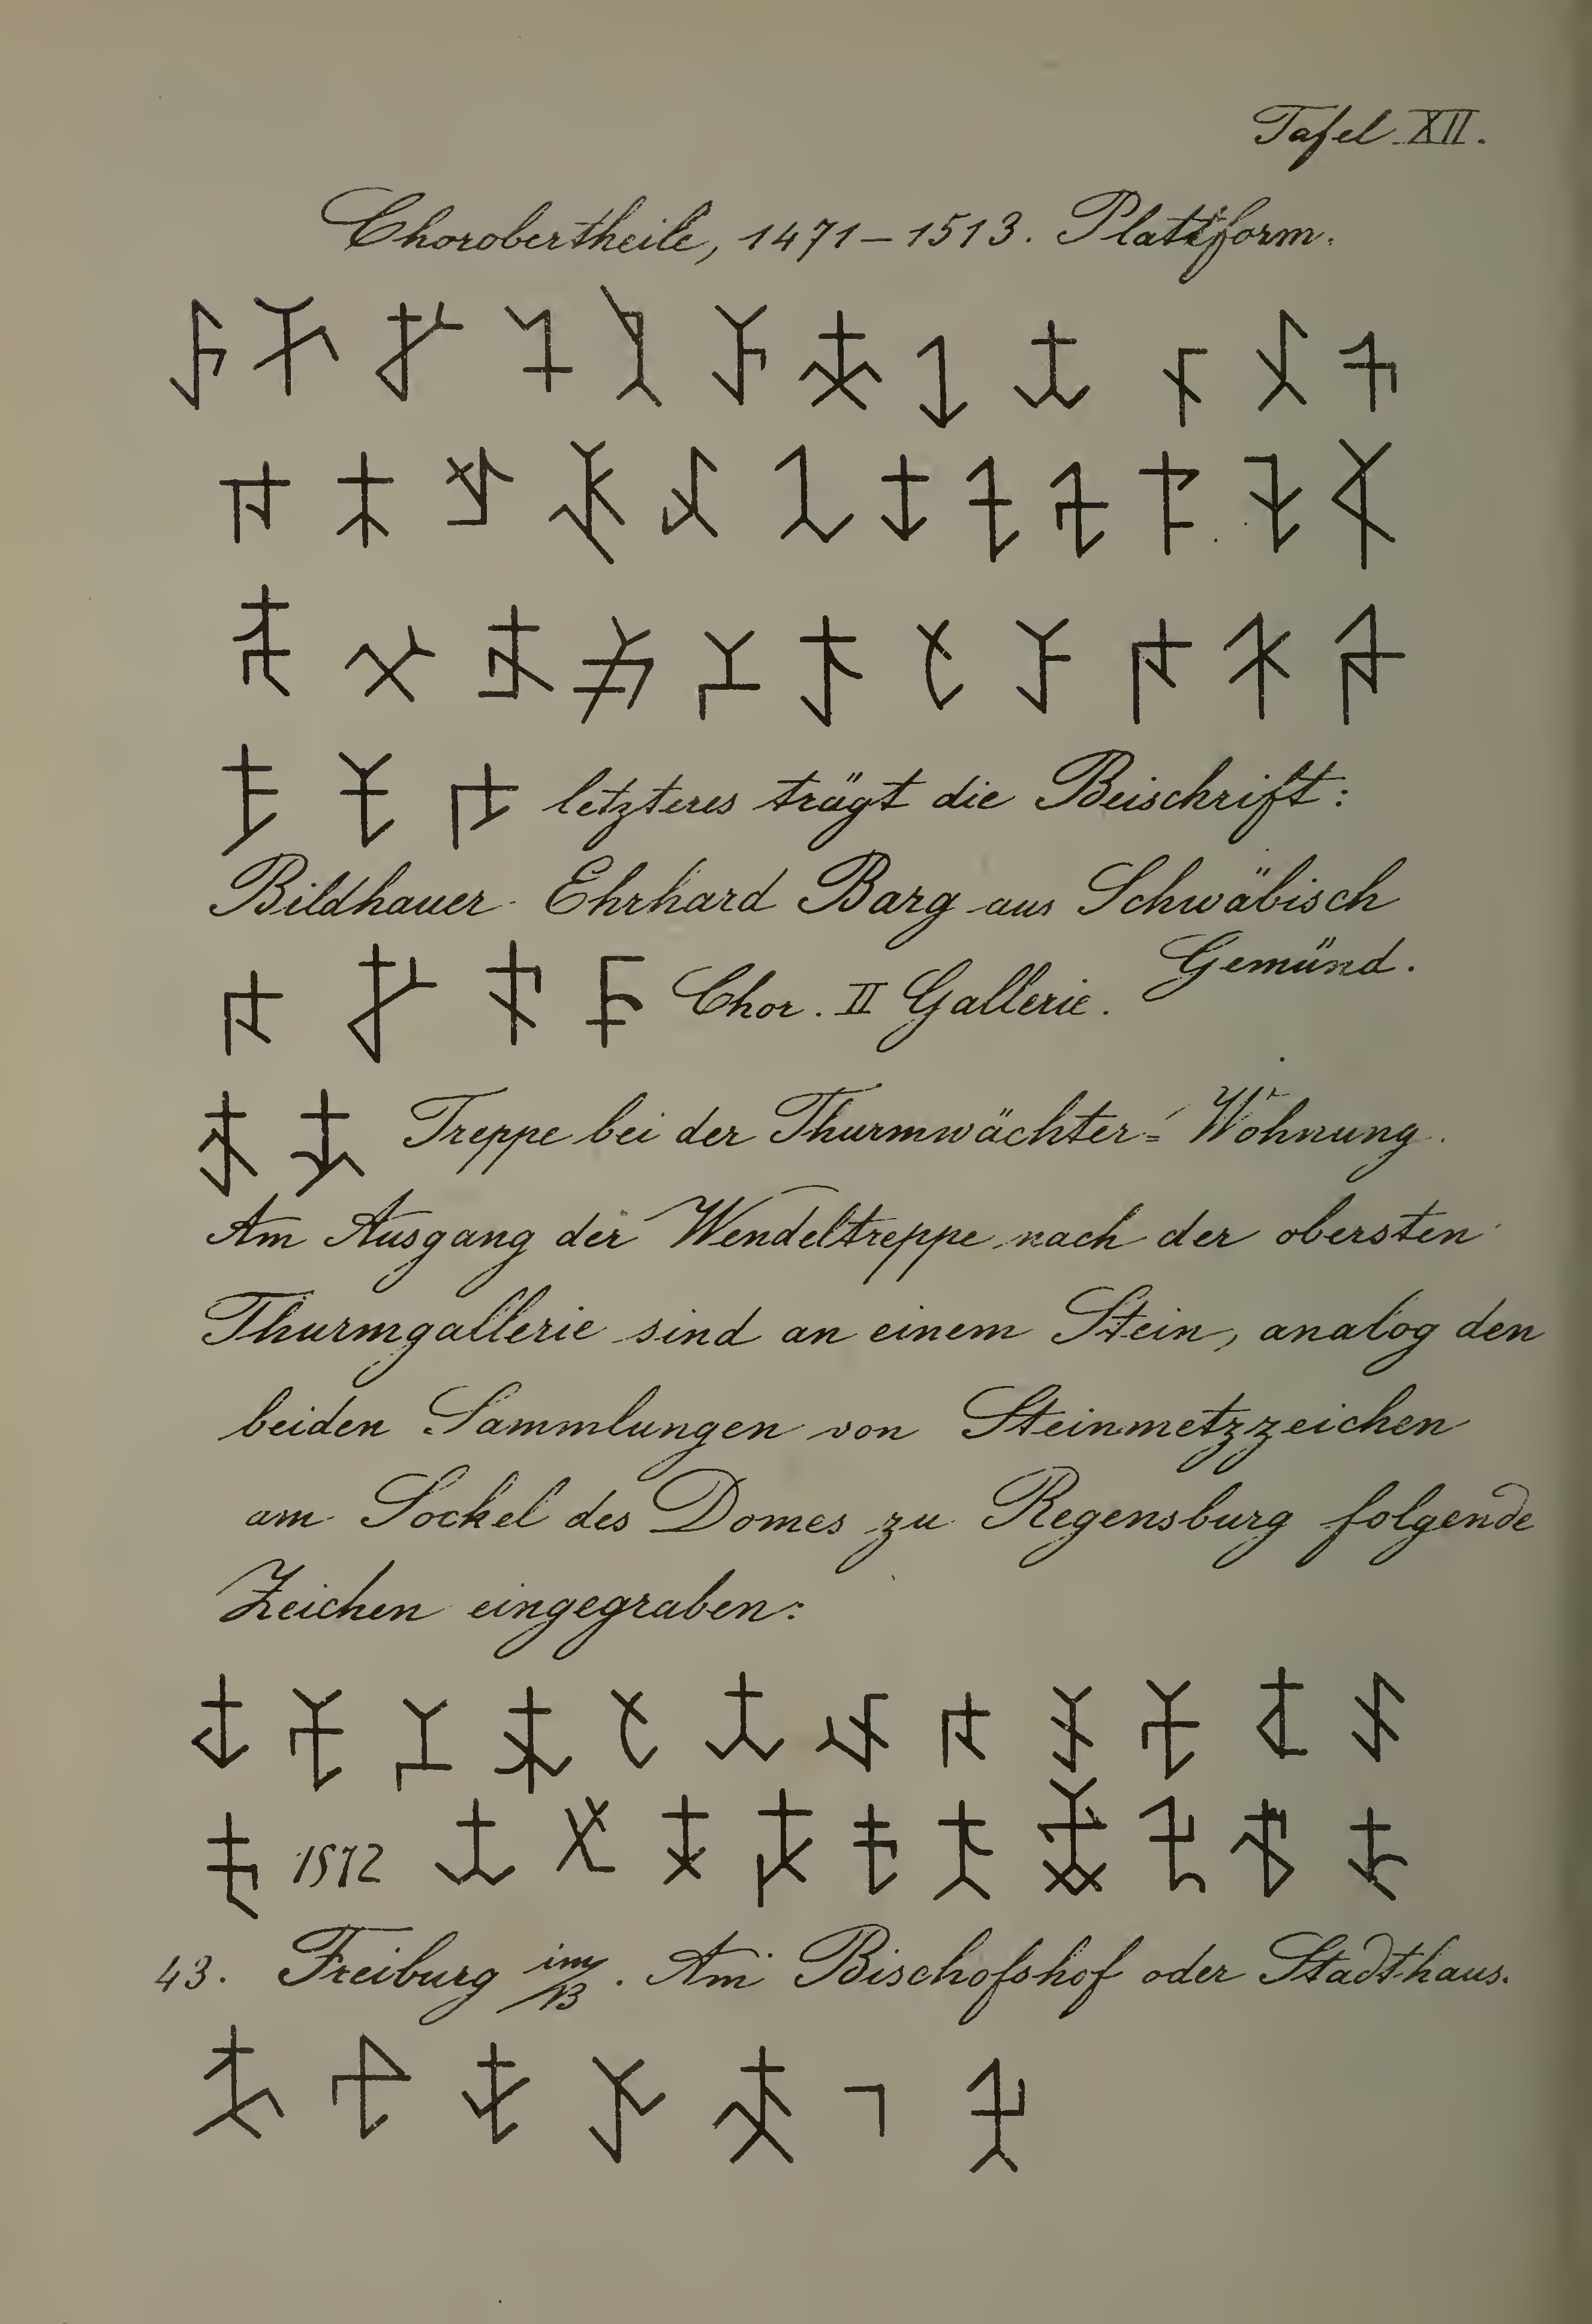 Tafel XII.
Chorobertheile, 1471–1513. Plattform.
letzteres trägt die Beischrift:
Bildhauer Ehrhard Barg aus Schwäbisch
Gemünd.
Chor. II Gallerie.
Treppe bei der Thurmwächter-Wohnung.
Am Ausgang der Wendeltreppe nach der obersten
Thurmgallerie sind an einem Stein, analog den
beiden Sammlungen von Steinmetzzeichen
am Sockel des Domes zu Regensburg folgende
Zeichen eingegraben:
1572
43. Freiburg im/B. Am Bischofshof oder Stadthaus.